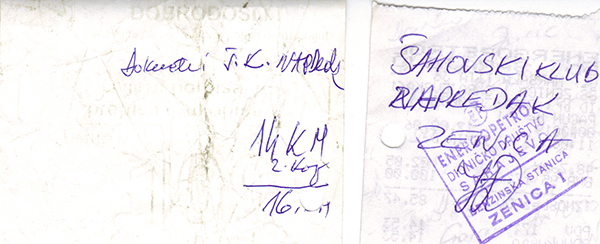 Š.K. NAPREDAK
14 KM
2. Kog
16.-
ŠAHOVSKI KLUB
NAPREDAK
ZENICA
ENERGOPETROL
DIONIČKO DRUŠTVO
SARAJEVO
BENZINSKA STANICA
ZENICA 1